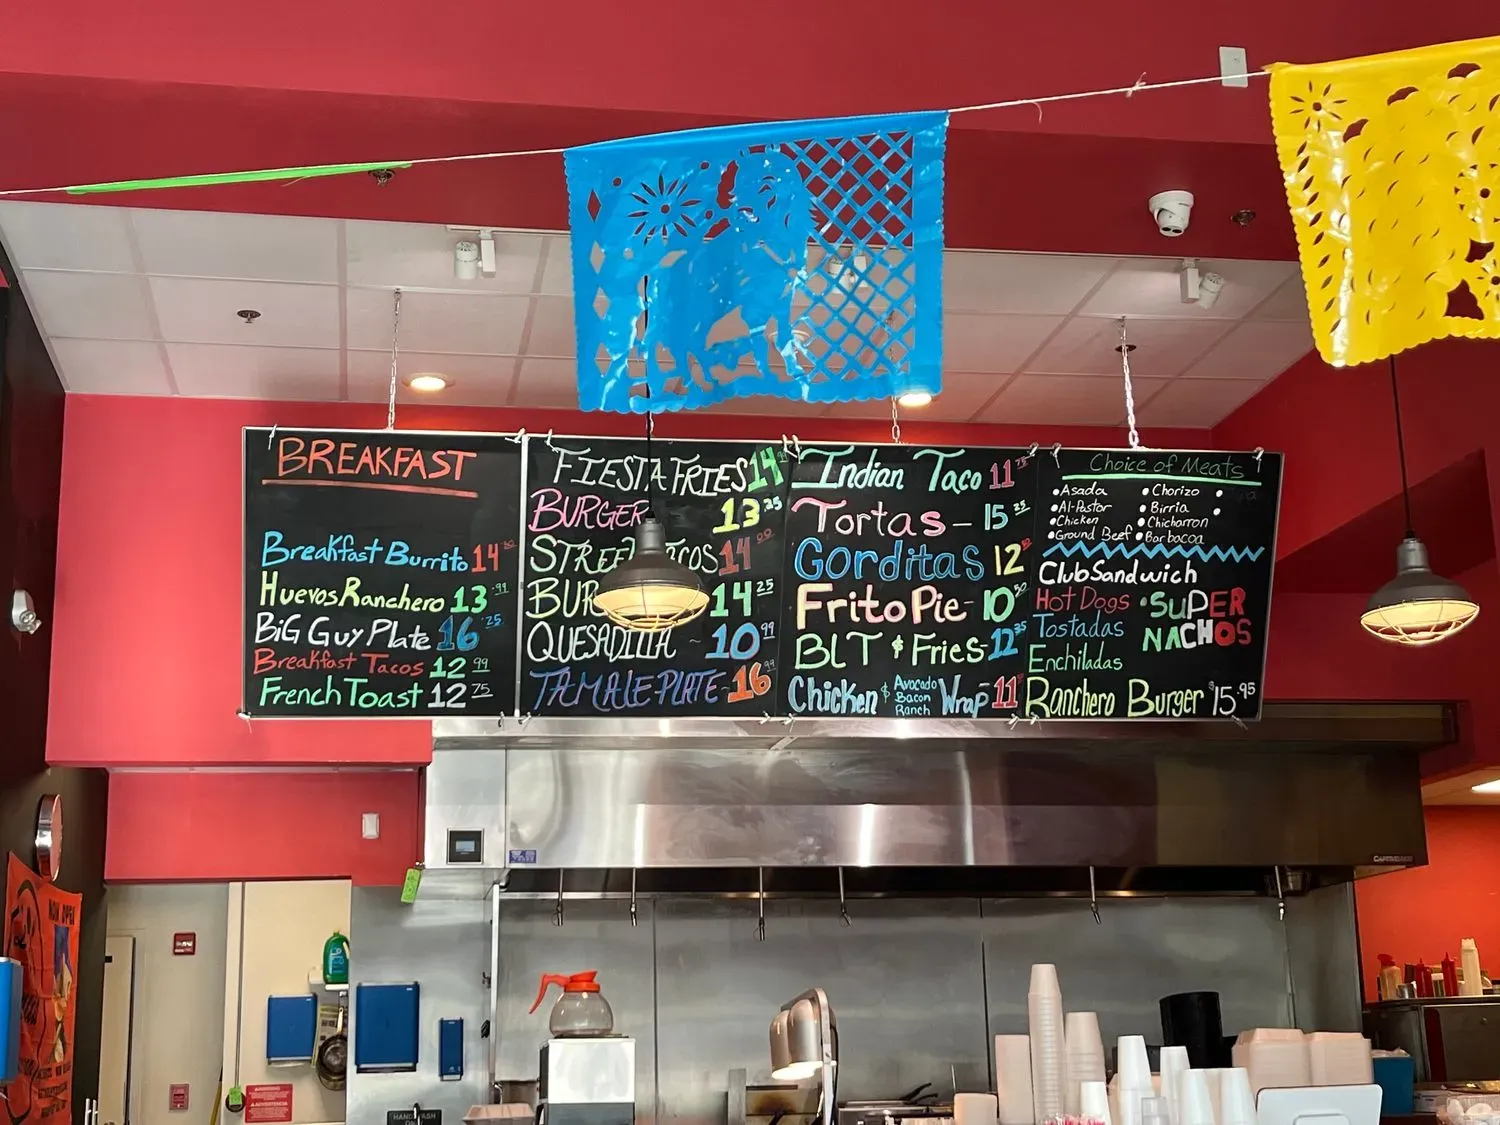 BREAKFAST
Breakfast Burrito 14
Huevos Ranchero 13 .99
BiG Guy Plate 16 .25
Breakfast Tacos 12 99
French Toast 12 75
FIESTA FRIES 14
BURGER 13 .25
STREET TACOS 14 00
BUR 14 25
QUESADILLA ~ 10 99
TAMALE PLATE - 16 99
Indian Taco 11 75
Tortas - 15 25
Gorditas 12
Frito Pie - 10 50
BLT & Fries - 12 35
Chicken & Avocado Bacon Ranch Wrap - 11
Choice of Meats
• Asada • Chorizo
• Al-Pastor • Birria
• Chicken • Chicharron
• Ground Beef • Barbacoa
Club Sandwich
Hot Dogs
Tostadas
Enchiladas
• SUPER
NACHOS
Ranchero Burger $15.95
CAPTIVEAIRE
NOW OPEN
ADVERTENCIA
HAND WASH